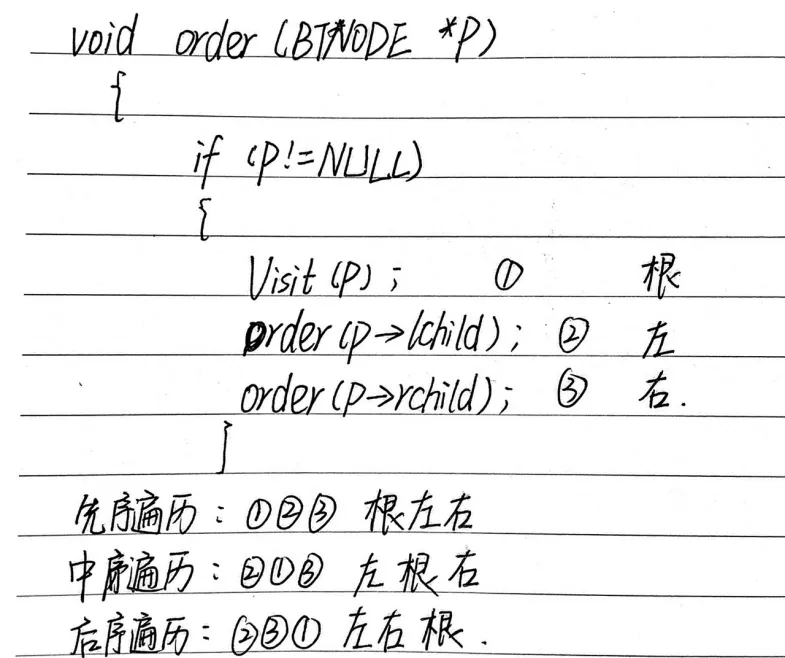 void order (BTNODE *P)
{
if (P!=NULL)
{
Visit (P) ; ① 根
order (p→lchild) ; ② 左
order (p→rchild) ; ③ 右.
}
先序遍历 : ①②③ 根左右
中序遍历 : ②①③ 左根右
后序遍历 : ②③① 左右根.